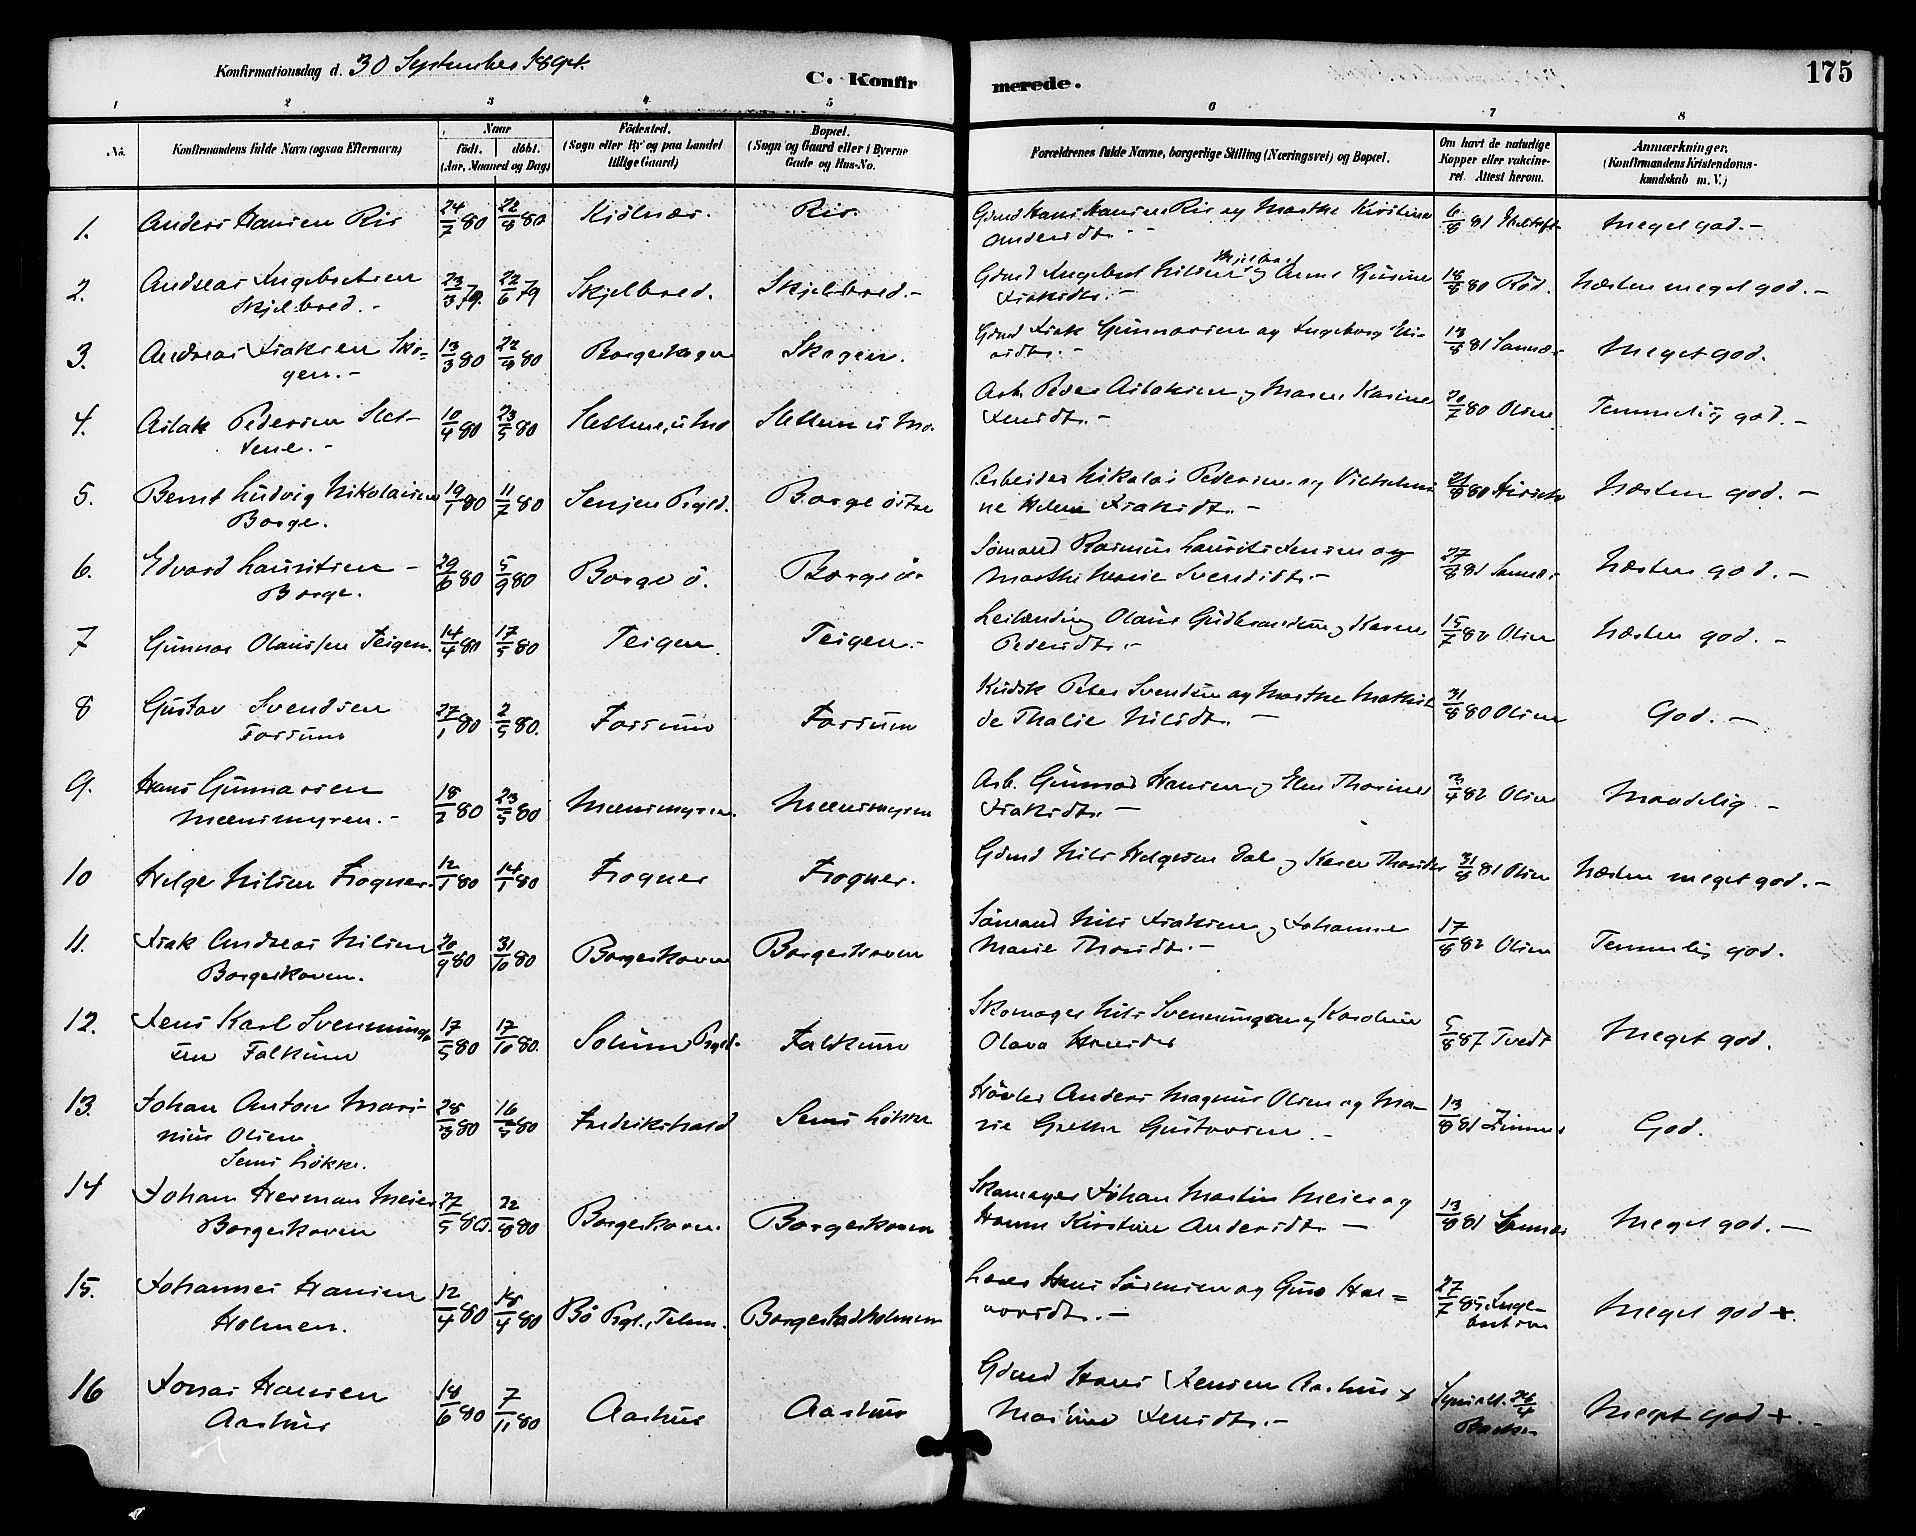 Konfirmationsdag d. 30 September
C. Konfirmerede.
175
1 2 3 4 5 6 7 8
No.
Konfirmandens fulde Navn (ogsaa Efternavn)
Naar
födt. döbt.
(Aar, Maaned og Dag)
Födested.
(Sogn eller By og paa Landet
tillige Gaard)
Bopæl.
(Sogn og Gaard eller i Byerne
Gade og Hus-No.
Forældrenes fulde Navne, borgerlige Stilling (Næringsvei) og Bopæl.
Om havt de naturlige
Kopper eller vakcine-
ret. Attest herom.
Anmærkninger,
(Konfirmandens Kristendoms-
kundskab m. V.)
1. Anders Hansen Ris 24/7 80 22/8 80 Kjölnæs. Ris. Gbmd Hans Hansen Ris og Marthe Kirstine 6/8 81 Meget god. -
Andersdtr. -
2. Andreas Ingebretsen 23/3 79. 22/6 79 Skjelbred. Skjelbred. - Gbmd Ingebret Nilsen Skjelbred og Anne Gurine 18/8 80 Röd. Næsten meget god. -
Skjelbred. - Isaksdtr. -
3. Andreas Isaksen Sko- 13/3 80 22/8 80 Borgeskogen Skogen. Gbmd Isak Gunnarsen og Ingeborg Eli- 13/8 81 Sannæs Meget god.
gen. - asdtr. -
4. Aslak Pedersen Slet- 10/4 80 23/5 80 Slettene, u Mo Slettene u Mo. Arb. Peder Aslaksen og Maren Karine 20/7 80 Olsen Temmelig god. -
tene. - Jensdtr. -
5. Bernt Ludvig Nikolaisen 19/1 80 11/7 80 Senjen Prgld. Borge östre Arbeider Nikolai Pedersen og Vilhelmi 80 Næsten god. -
Borge. ne Helene Isaksdtr. -
6. Edvard Lauritsen - 29/6 80 5/9 80 Borge ö. Borge ö. Sömand Rasmus Laurits Jensen og 27/8 81 Sannæs Næsten god. -
Borge. Marthe Marie Svendsdtr. -
7 Gunnar Olaussen Teigen. 14/4 80 17/5 80 Teigen. Teigen. - Leilænding Olaus Gudbrandsen og Karen 15/7 82 Olsen Næsten god. -
Pedersdtr. -
8 Gustav Svendsen 27/1 80 2/5 80. Fossum Fossum Kudsk Peter Svendsen og Marthe Mathil 31/8 80 Olsen God. -
Fossum de Thalie Nilsdtr. -
9. Hans Gunnarsen 18/2 80 23/5 80 Mænsmyren. Mænsmyren Arb. Gunnar Hansen og Elen Thorine 3/4 82 Olsen Maadelig -
Mænsmyren. - Isaksdtr. -
10 Helge Nilsen Frogner. 12/1 80 14/1 80 Frogner Frogner. Gbmd Nils Helgesen Dal og Karen Thorsdtr 31/8 81 Olsen Næsten meget god. -
11. Isak Andreas Nilsen 20/9 80 31/10 80 Borgeskoven Borgeskoven Sömand Nils Isaksen og Johanne 17/8 82 Olsen Temmelig god.
Borgeskoven. Marie Thorsdtr. -
12. Jens Karl Svennings- 17/5 80 17/10 80. Solum Prgld. Falkum Skomager Nils Svenningsen og Karoline 5/8 87 Tvedt Meget god.
sen Falkum Olava Hansdtr
13. Johan Anton Mari- 28/3 80 16/5 80 Fredrikshald Sems Lökke Hövler Anders Magnus Olsen og Ma- 13/8 81 God.
nius Olsen rie Grethe Gustavsen. -
Sems Lökke.
14 Johan Herman Meier 27/5 80. 22/8 80 Borgeskoven. Borgeskoven Skomager Johan Martin Meier og 13/8 81 Sannæs Meget god. -
Borgeskoven Hanne Kirstine Andersdtr -
15. Johannes Hansen 12/4 80 18/4 80 Bö Prgl., Telem. Borgestadholmen Hans Sörensen og Guro Hal= 27/7 85 Inge- Meget god +.
Holmen. vorsdtr. - bretsen
16 Jonas Hansen 14/6 80 7/11 80 Aashus Aashus Gbmd Hans Jensen Aashus + 26/4 Meget god +. -
Aashus Martine Jensdtr. -